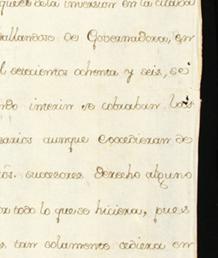 que de la inversion en la citada
allandose de Governadora, en
l setecientos ochenta y seis, se
ndo interin se cobraban los
esarios aunque excedieran de
successores derecho alguno
or todo lo que se hiciera, pues
s, tan solamente cediera en